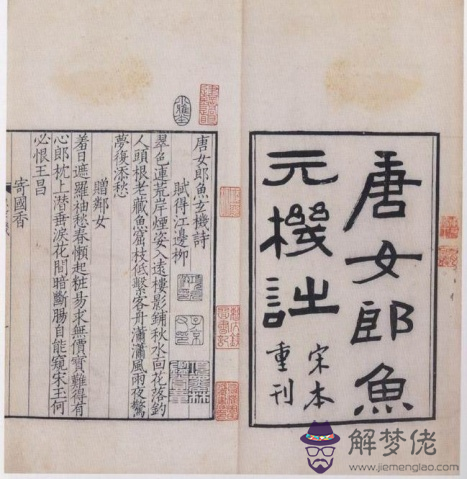 唐女郎魚
元機詩
宋本
重刊
唐女郎魚玄機詩
賦得江邊柳
翠色連荒岸煙姿入遠樓影鋪秋水面花落釣
人頭根老藏魚窟枝低繫客舟瀟瀟風雨夜驚
夢復添愁
贈鄰女
羞日遮羅袖愁春懶起粧易求無價寶難得有
心郎枕上潛垂淚花間暗斷腸自能窺宋玉何
必恨王昌
寄國香
解梦佬
www.jiemenglao.com